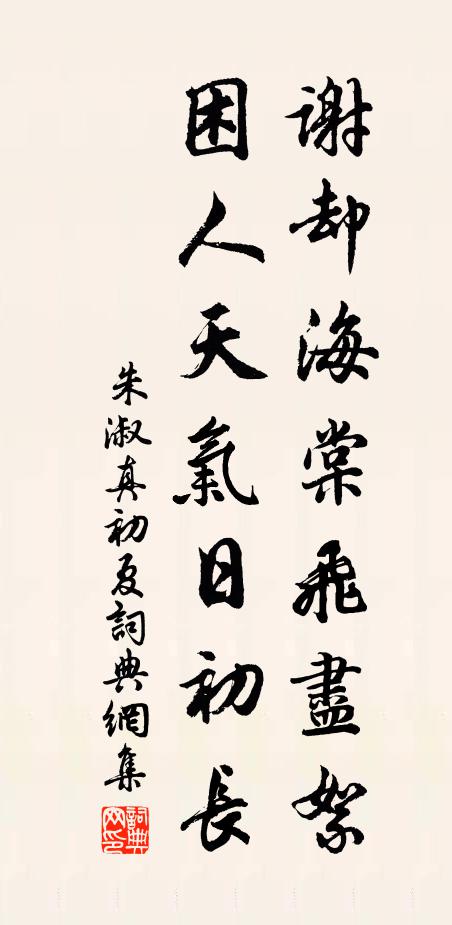 謝却海棠飛盡絮
困人天氣日初長
朱淑真初夏詞典網集
詞典网印